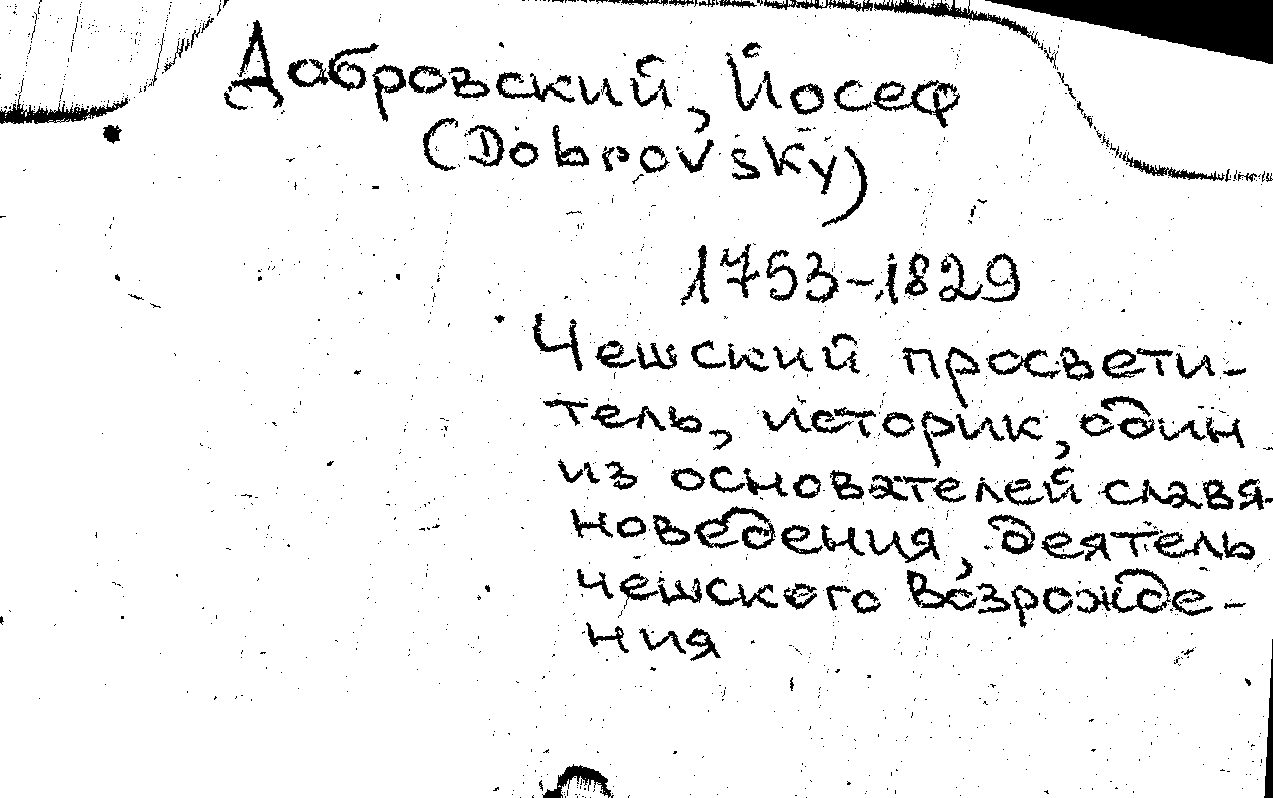 Добровский, Йосеф
(Dobrovsky)
1753-1829
Чешский просвети-
тель, историк, один
из основателей славя-
новедения, деятель
чешского Возрожде-
ния